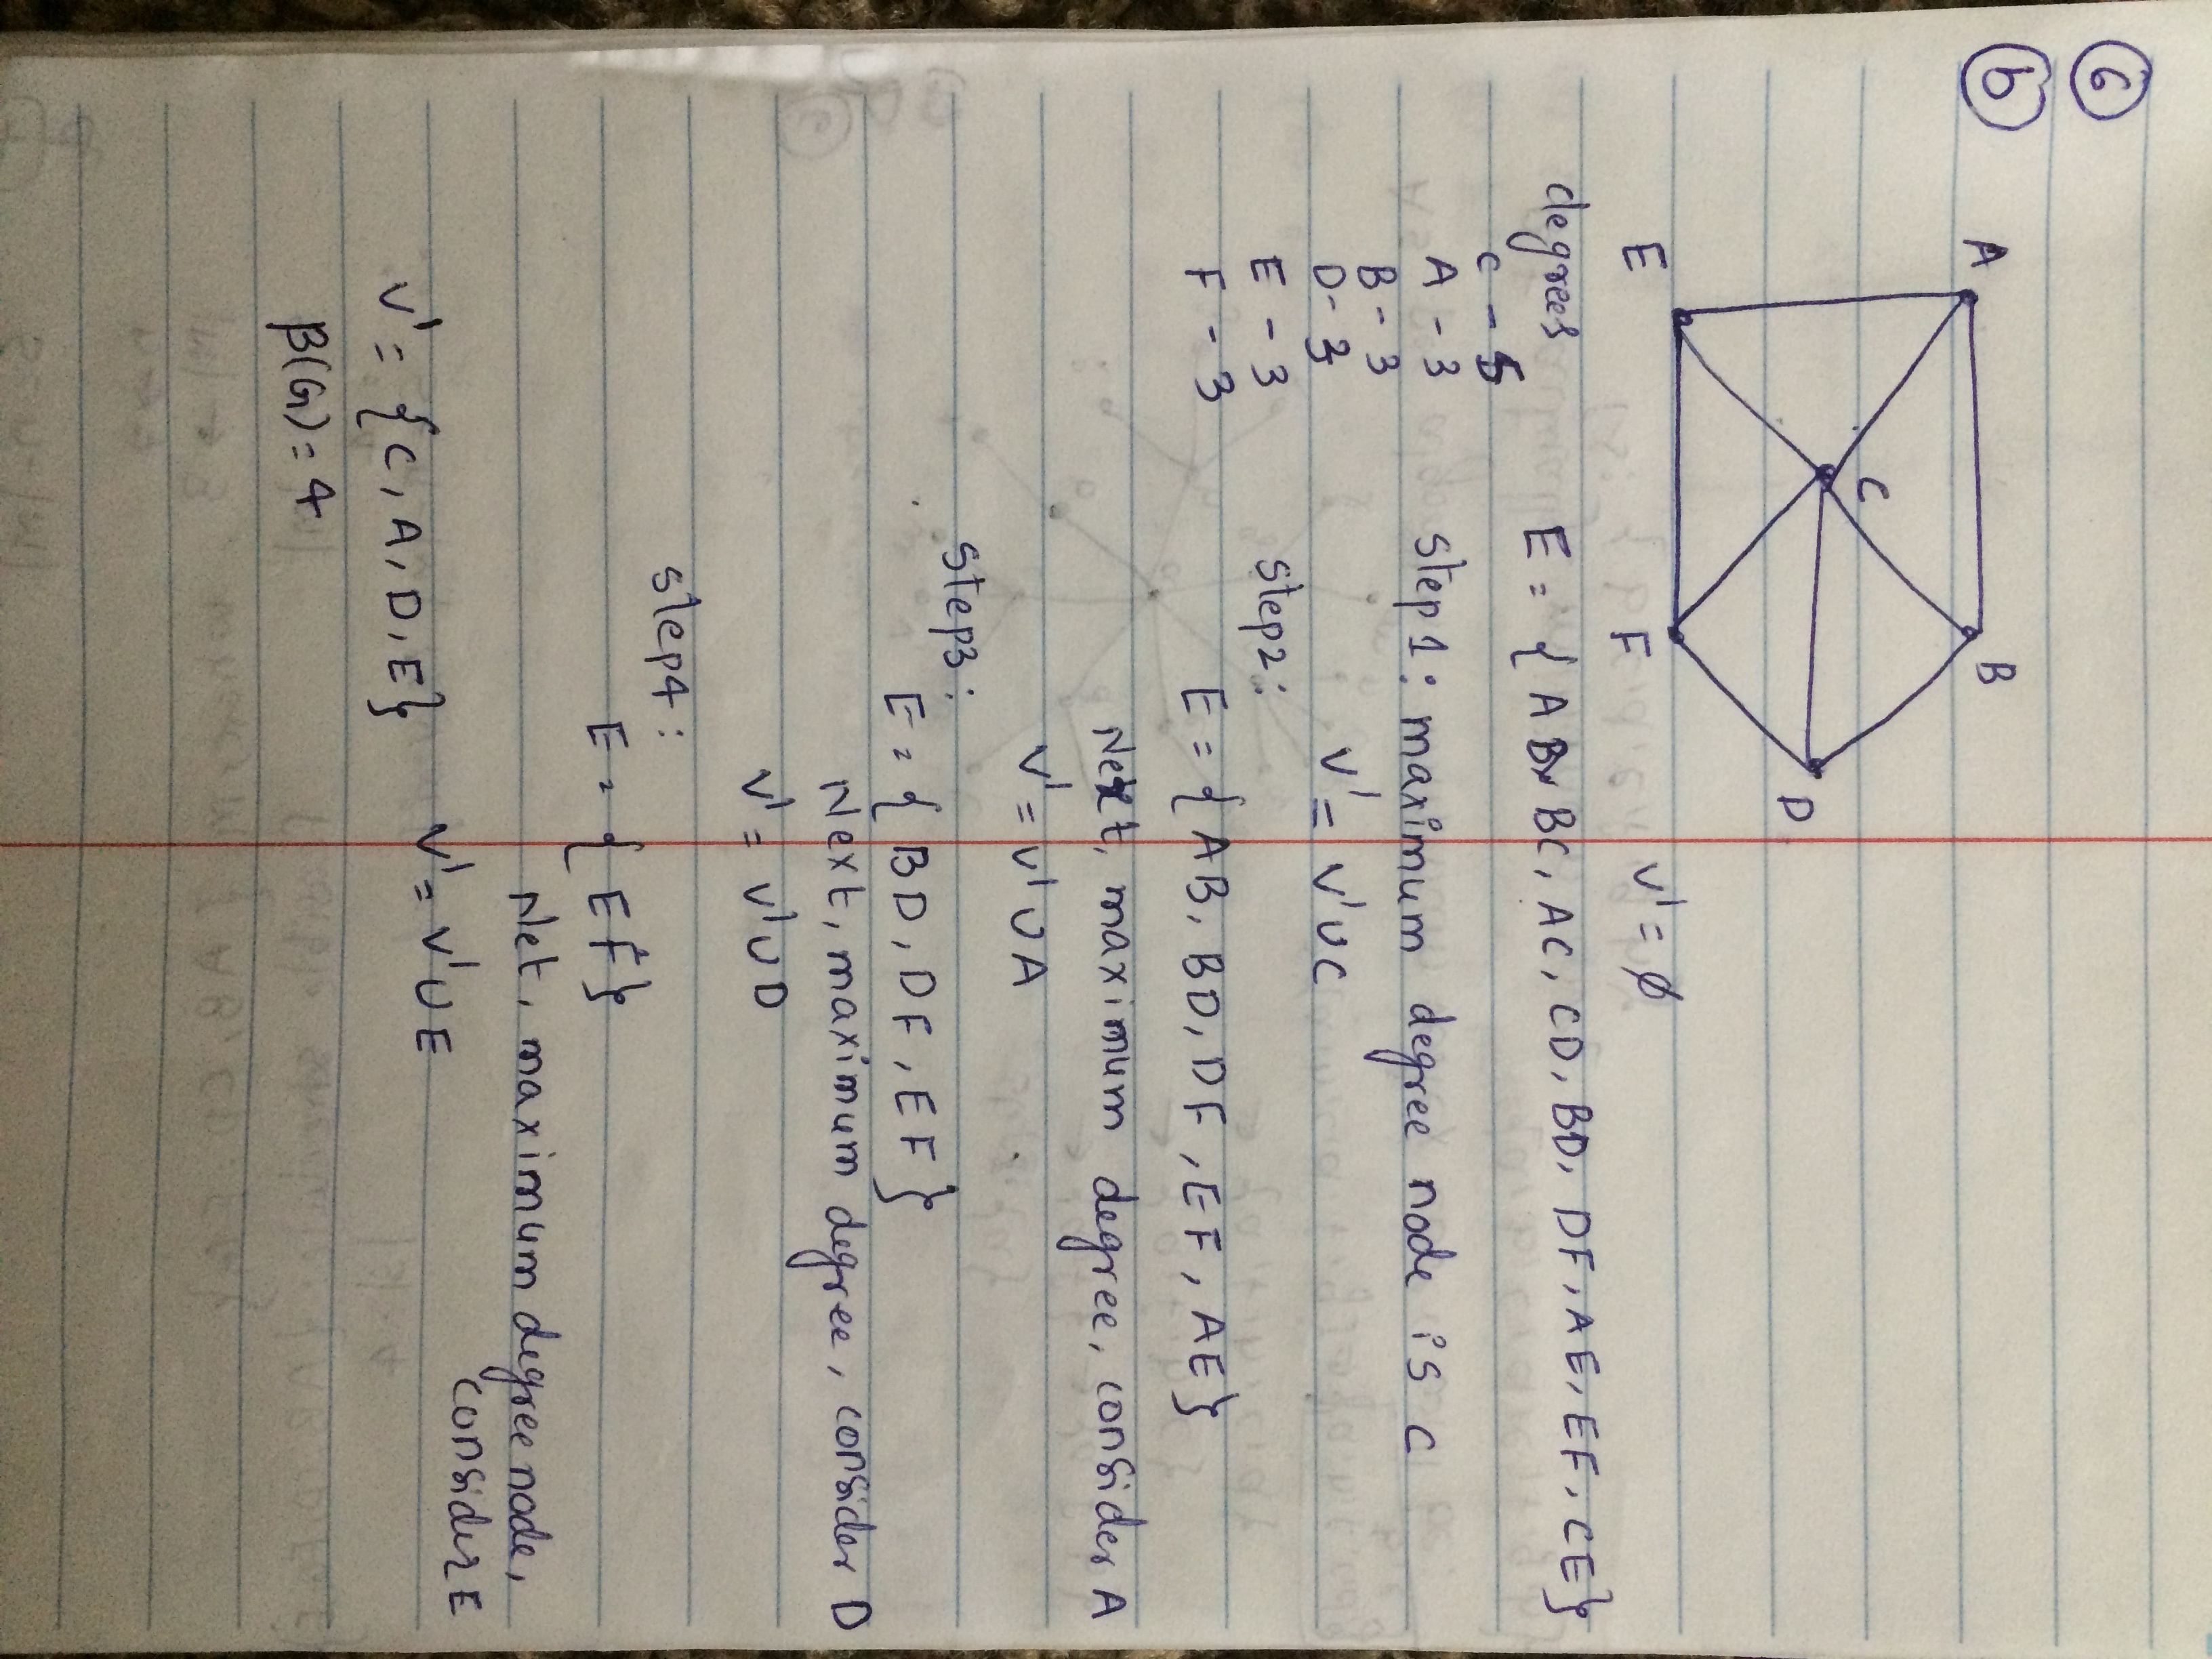 6
b
A
B
C
D
E
F
V' = ∅
degrees
E = { AB, BC, AC, CD, BD, DF, AE, EF, CE}
C - 5
A - 3
B - 3
D - 3
E - 3
F - 3
step1: maximum degree node is C
V' = V'UC
step2:
E = { AB, BD, DF, EF, AE}
Next, maximum degree, consider A
V' = V'UA
step3:
E = { BD, DF, EF}
Next, maximum degree, consider D
V' = V'UD
step4:
E = { EF}
Net, maximum degree node,
consider E
V' = V'UE
V' = { C, A, D, E}
β(G) = 4